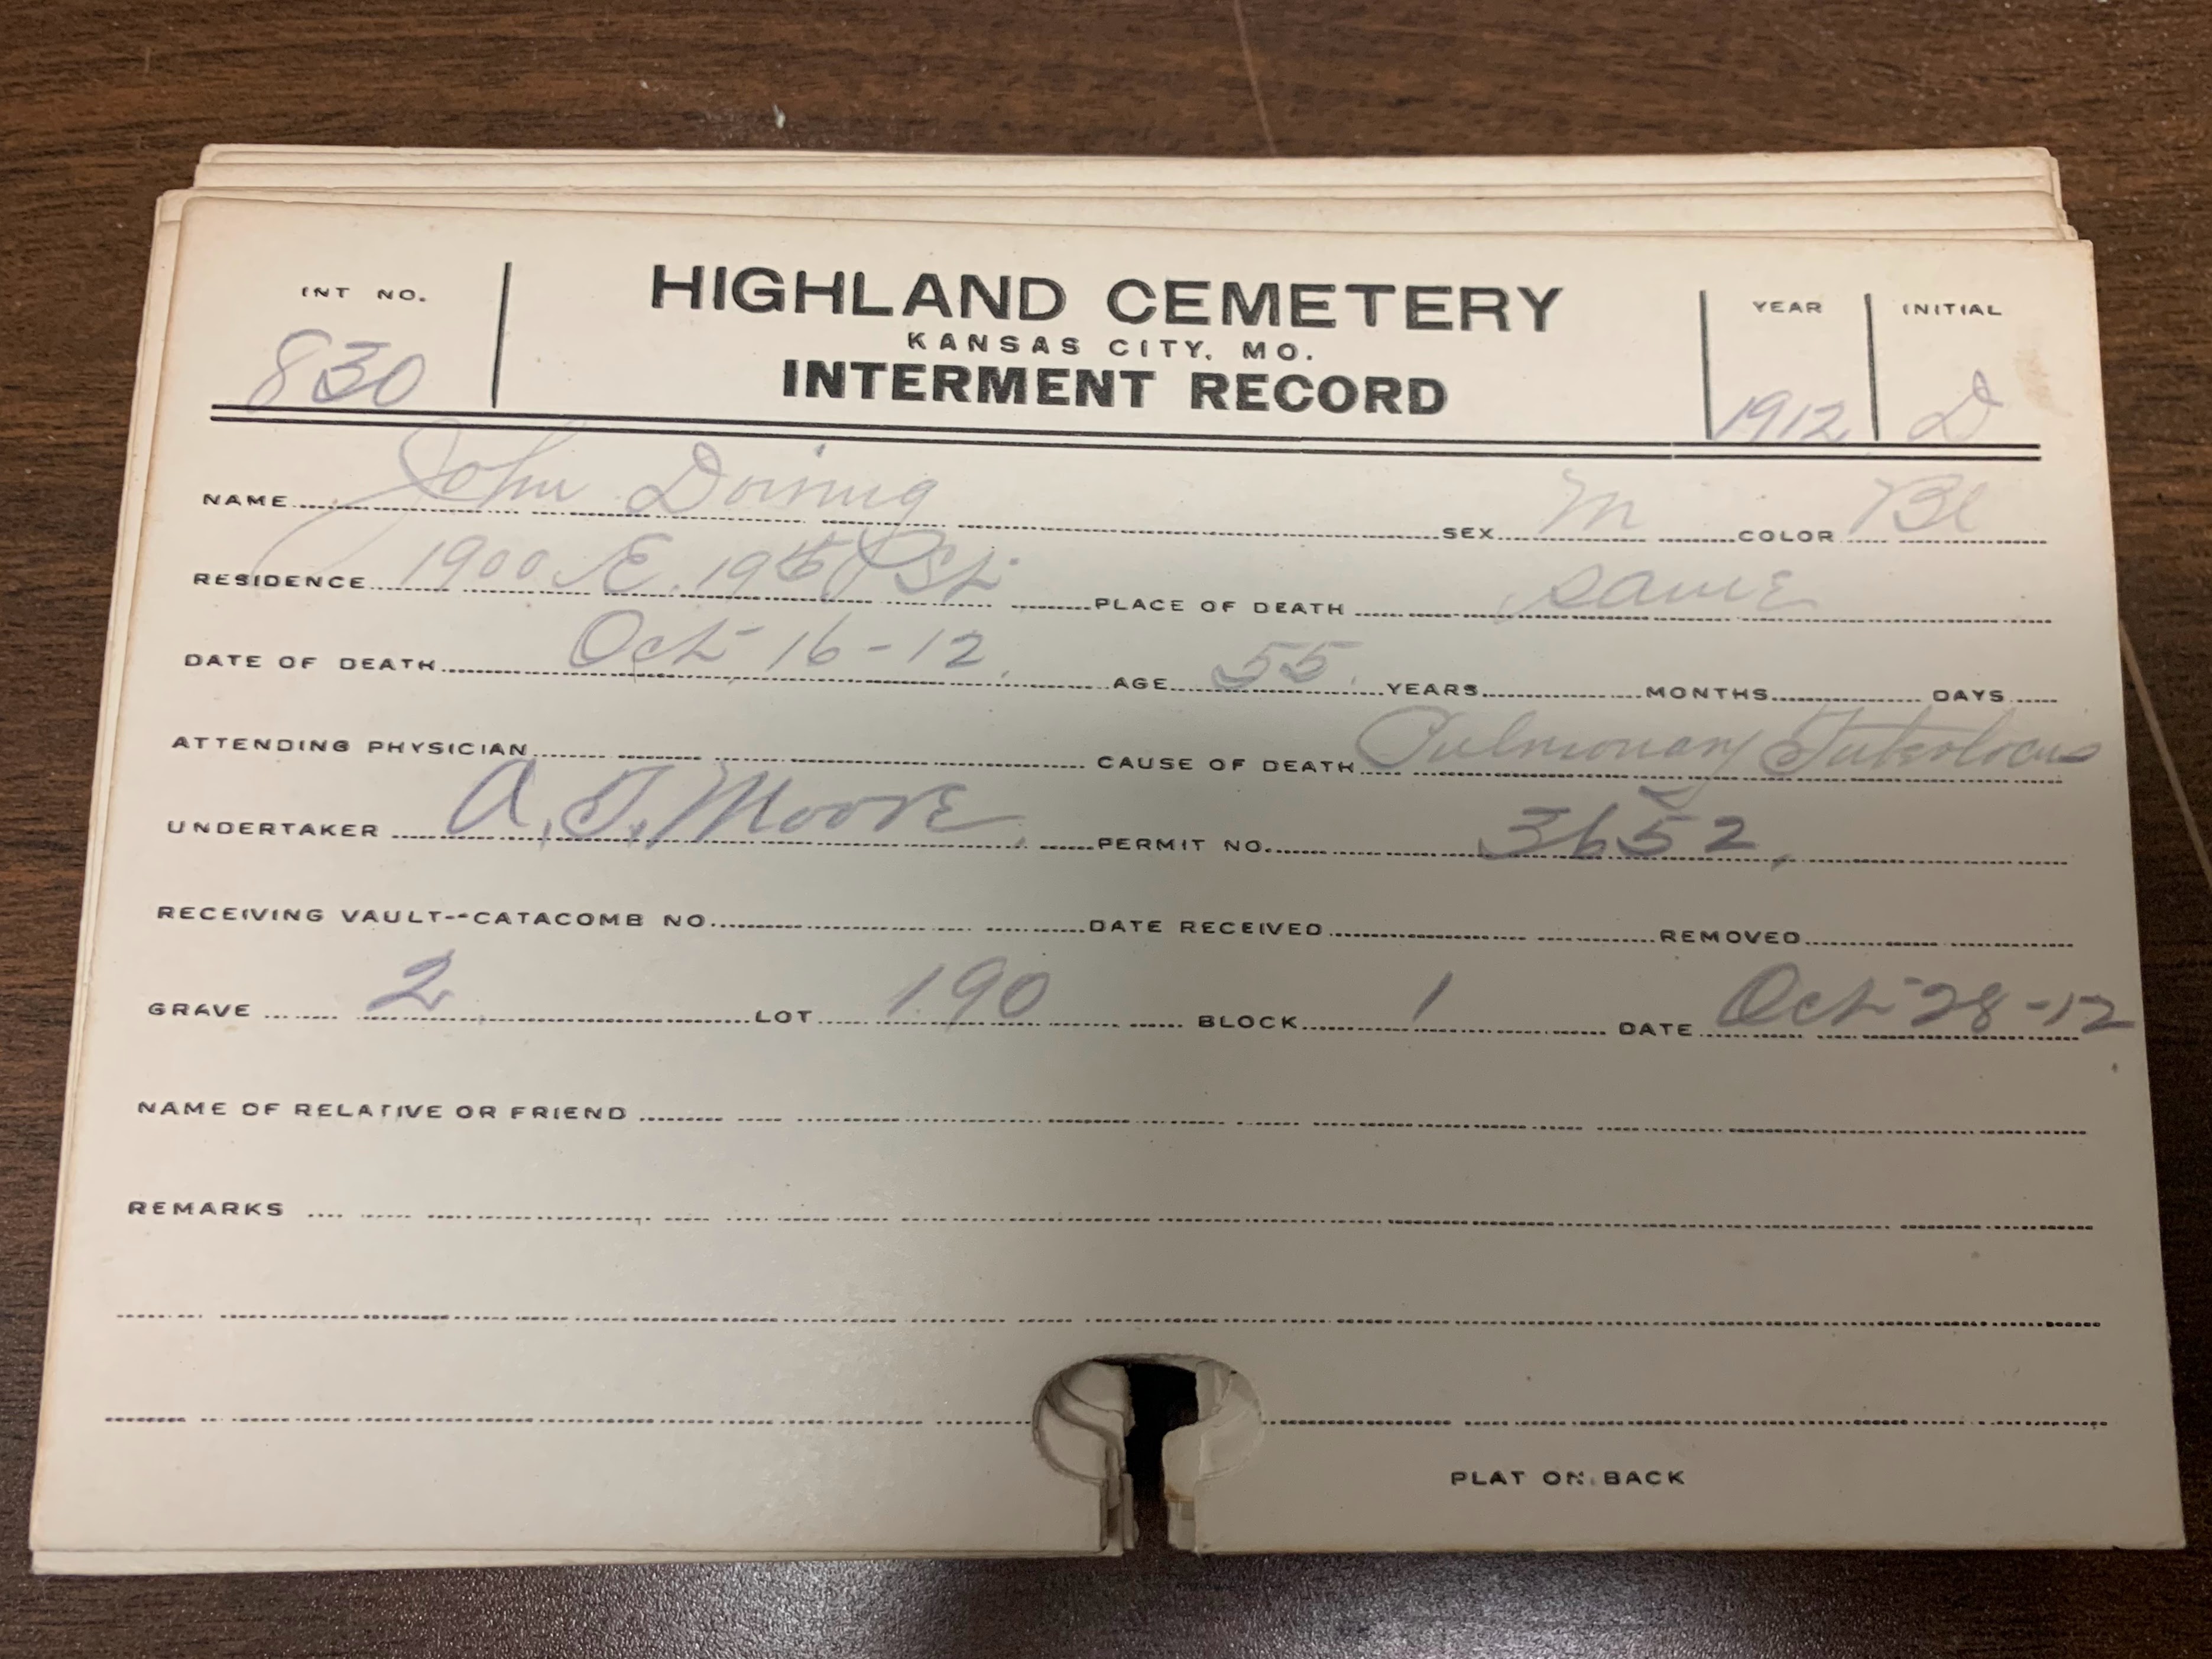 INT NO.
HIGHLAND CEMETERY
YEAR INITIAL
KANSAS CITY, MO.
830
INTERMENT RECORD
1912 D
NAME John Doining SEX M COLOR Bl
RESIDENCE 1900 E. 19th St. PLACE OF DEATH same
DATE OF DEATH Oct 16-12. AGE 55. YEARS MONTHS DAYS
ATTENDING PHYSICIAN CAUSE OF DEATH Pulmonary
UNDERTAKER A. T. Moore. PERMIT NO. 3652,
RECEIVING VAULT--CATACOMB NO. DATE RECEIVED REMOVED
GRAVE 2 LOT 190 BLOCK 1 DATE Oct-28-12
NAME OF RELATIVE OR FRIEND
REMARKS
PLAT ON BACK